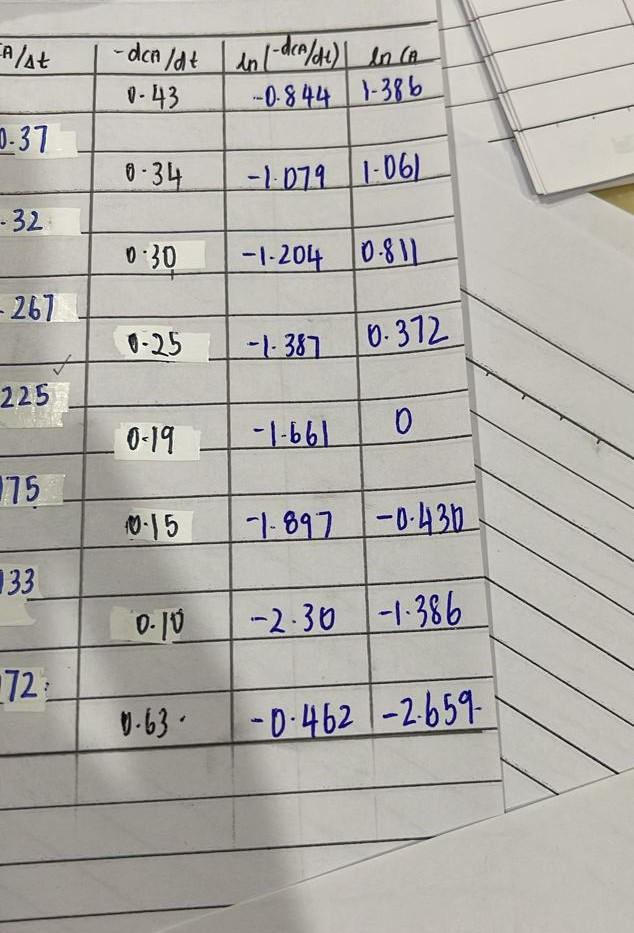 CA/Δt -dCA/dt ln(-dCA/dt) ln CA
0.43 -0.844 1.386
0.37
0.34 -1.079 1.061
.32
0.30 -1.204 0.811
.267
0.25 -1.387 0.372
225
0.19 -1.661 0
175
0.15 -1.897 -0.430
133
0.10 -2.30 -1.386
72
0.63 -0.462 -2.659